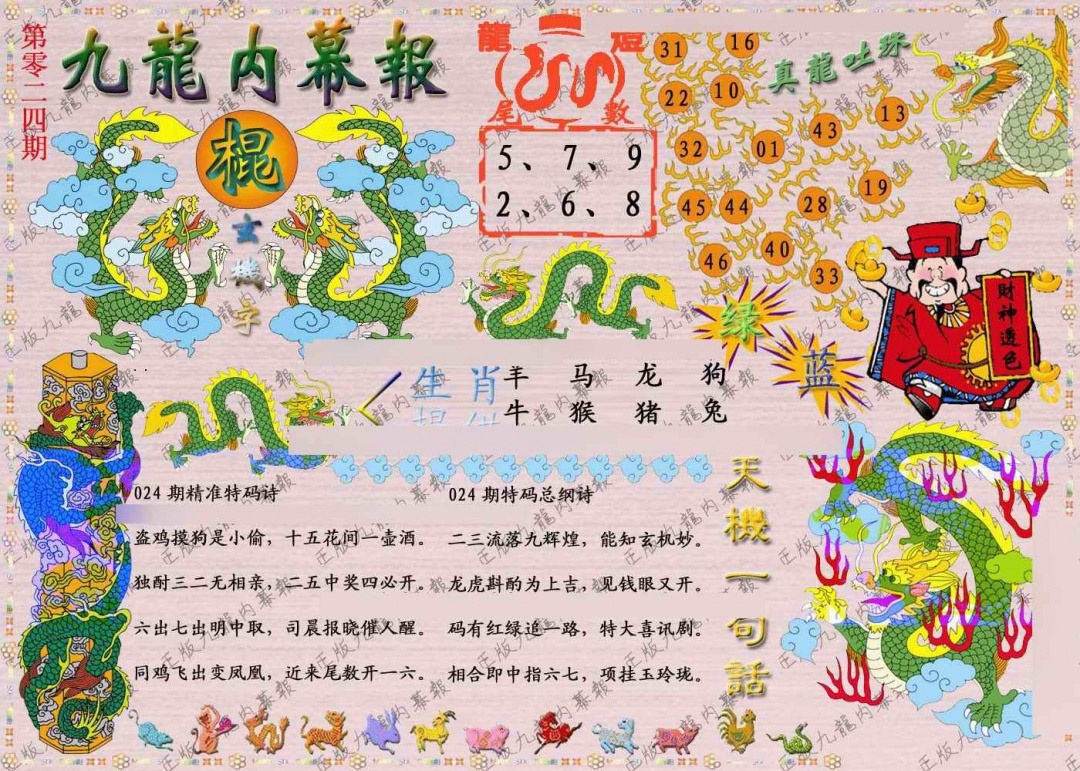 第零二四期
九龍内幕報
棍
玄機字
龍燈
尾數
5、7、9
2、6、8
真龍吐珠
31 16
22 10
13
43
32 01
19
45 44 28
40
46 33
绿
蓝
財神透色
生肖
羊 马 龙 狗
牛 猴 猪 兔
天機一句話
024 期精准特码诗
盗鸡摸狗是小偷，十五花间一壶酒。
独酌三二无相亲，二五中奖四必开。
六出七出明中取，司晨报晓催人醒。
同鸡飞出变凤凰，近来尾数开一六。
024 期特码总纲诗
二三流落九辉煌，能知玄机妙。
龙虎斟酌为上吉，见钱眼又开。
码有红绿追一路，特大喜讯剧。
相合即中指六七，项挂玉玲珑。
正版九龍内幕報